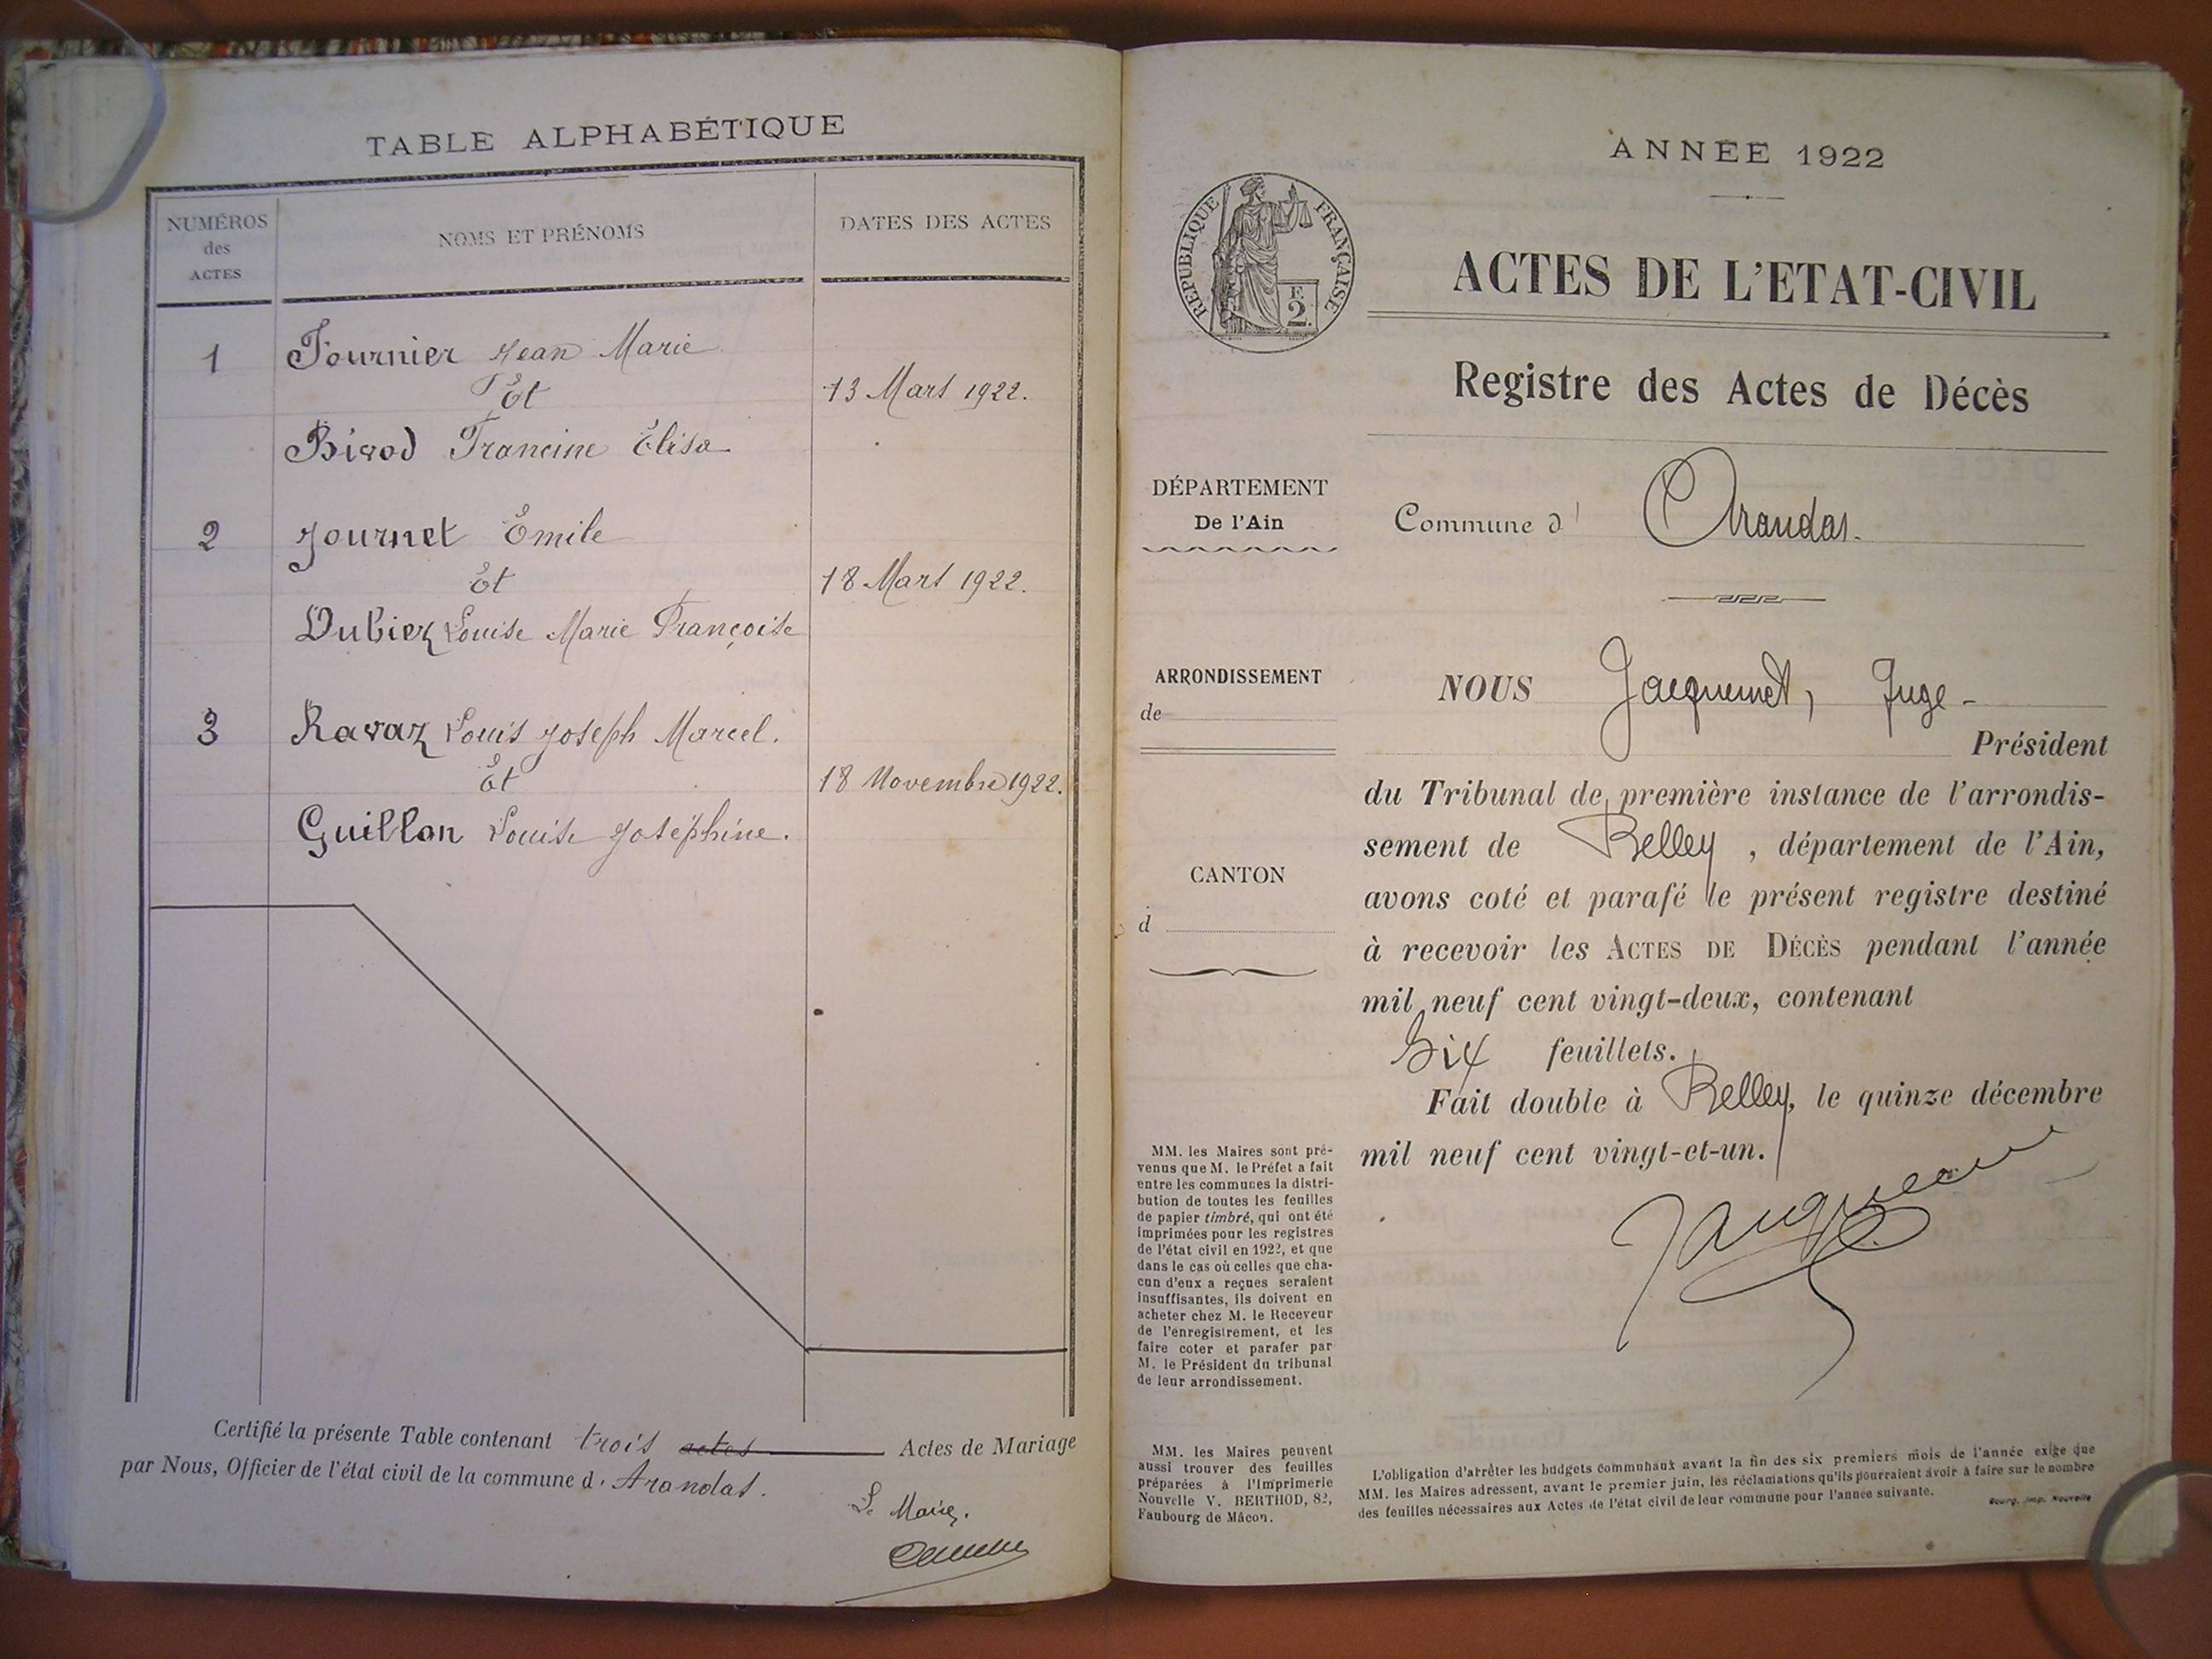 TABLE ALPHABÉTIQUE
NUMÉROS
des
ACTES
NOMS ET PRÉNOMS
DATES DES ACTES
1 Fournier Jean Marie
Et
13 Mars 1922.
Bivod Francine Élisa
2 Journet Émile
Et
18 Mars 1922.
Dubiez Louise Marie Françoise
3 Ravaz Louis Joseph Marcel.
Et
18 Novembre 1922.
Guillon Louise Joséphine.
Certifié la présente Table contenant trois actes Actes de Mariage
par Nous, Officier de l'état civil de la commune d' Arandas.
Le Maire.
ANNÉE 1922
REPUBLIQUE FRANÇAISE
E
2.
ACTES DE L'ETAT-CIVIL
Registre des Actes de Décès
DÉPARTEMENT
De l'Ain
Commune d' Arandas.
ARRONDISSEMENT
de
CANTON
d
NOUS Jacquemet, Juge -
Président
du Tribunal de première instance de l'arrondis-
sement de Belley, département de l'Ain,
avons coté et parafé le présent registre destiné
à recevoir les ACTES DE DÉCÈS pendant l'année
mil neuf cent vingt-deux, contenant
Six feuillets.
Fait double à Belley, le quinze décembre
mil neuf cent vingt-et-un.
MM. les Maires sont pré-
venus que M. le Préfet a fait
entre les communes la distri-
bution de toutes les feuilles
de papier timbré, qui ont été
imprimées pour les registres
de l'état civil en 1922, et que
dans le cas où celles que cha-
cun d'eux a reçues seraient
insuffisantes, ils doivent en
acheter chez M. le Receveur
de l'enregistrement, et les
faire coter et parafer par
M. le Président du tribunal
de leur arrondissement.
MM. les Maires peuvent
aussi trouver des feuilles
préparées à l'Imprimerie
Nouvelle V. BERTHOD, 82,
Faubourg de Mâcon.
L'obligation d'arrêter les budgets communaux avant la fin des six premiers mois de l'année exige que
MM. les Maires adressent, avant le premier juin, les réclamations qu'ils pourraient avoir à faire sur le nombre
des feuilles nécessaires aux Actes de l'état civil de leur commune pour l'année suivante.
Bourg, Imp. Nouvelle